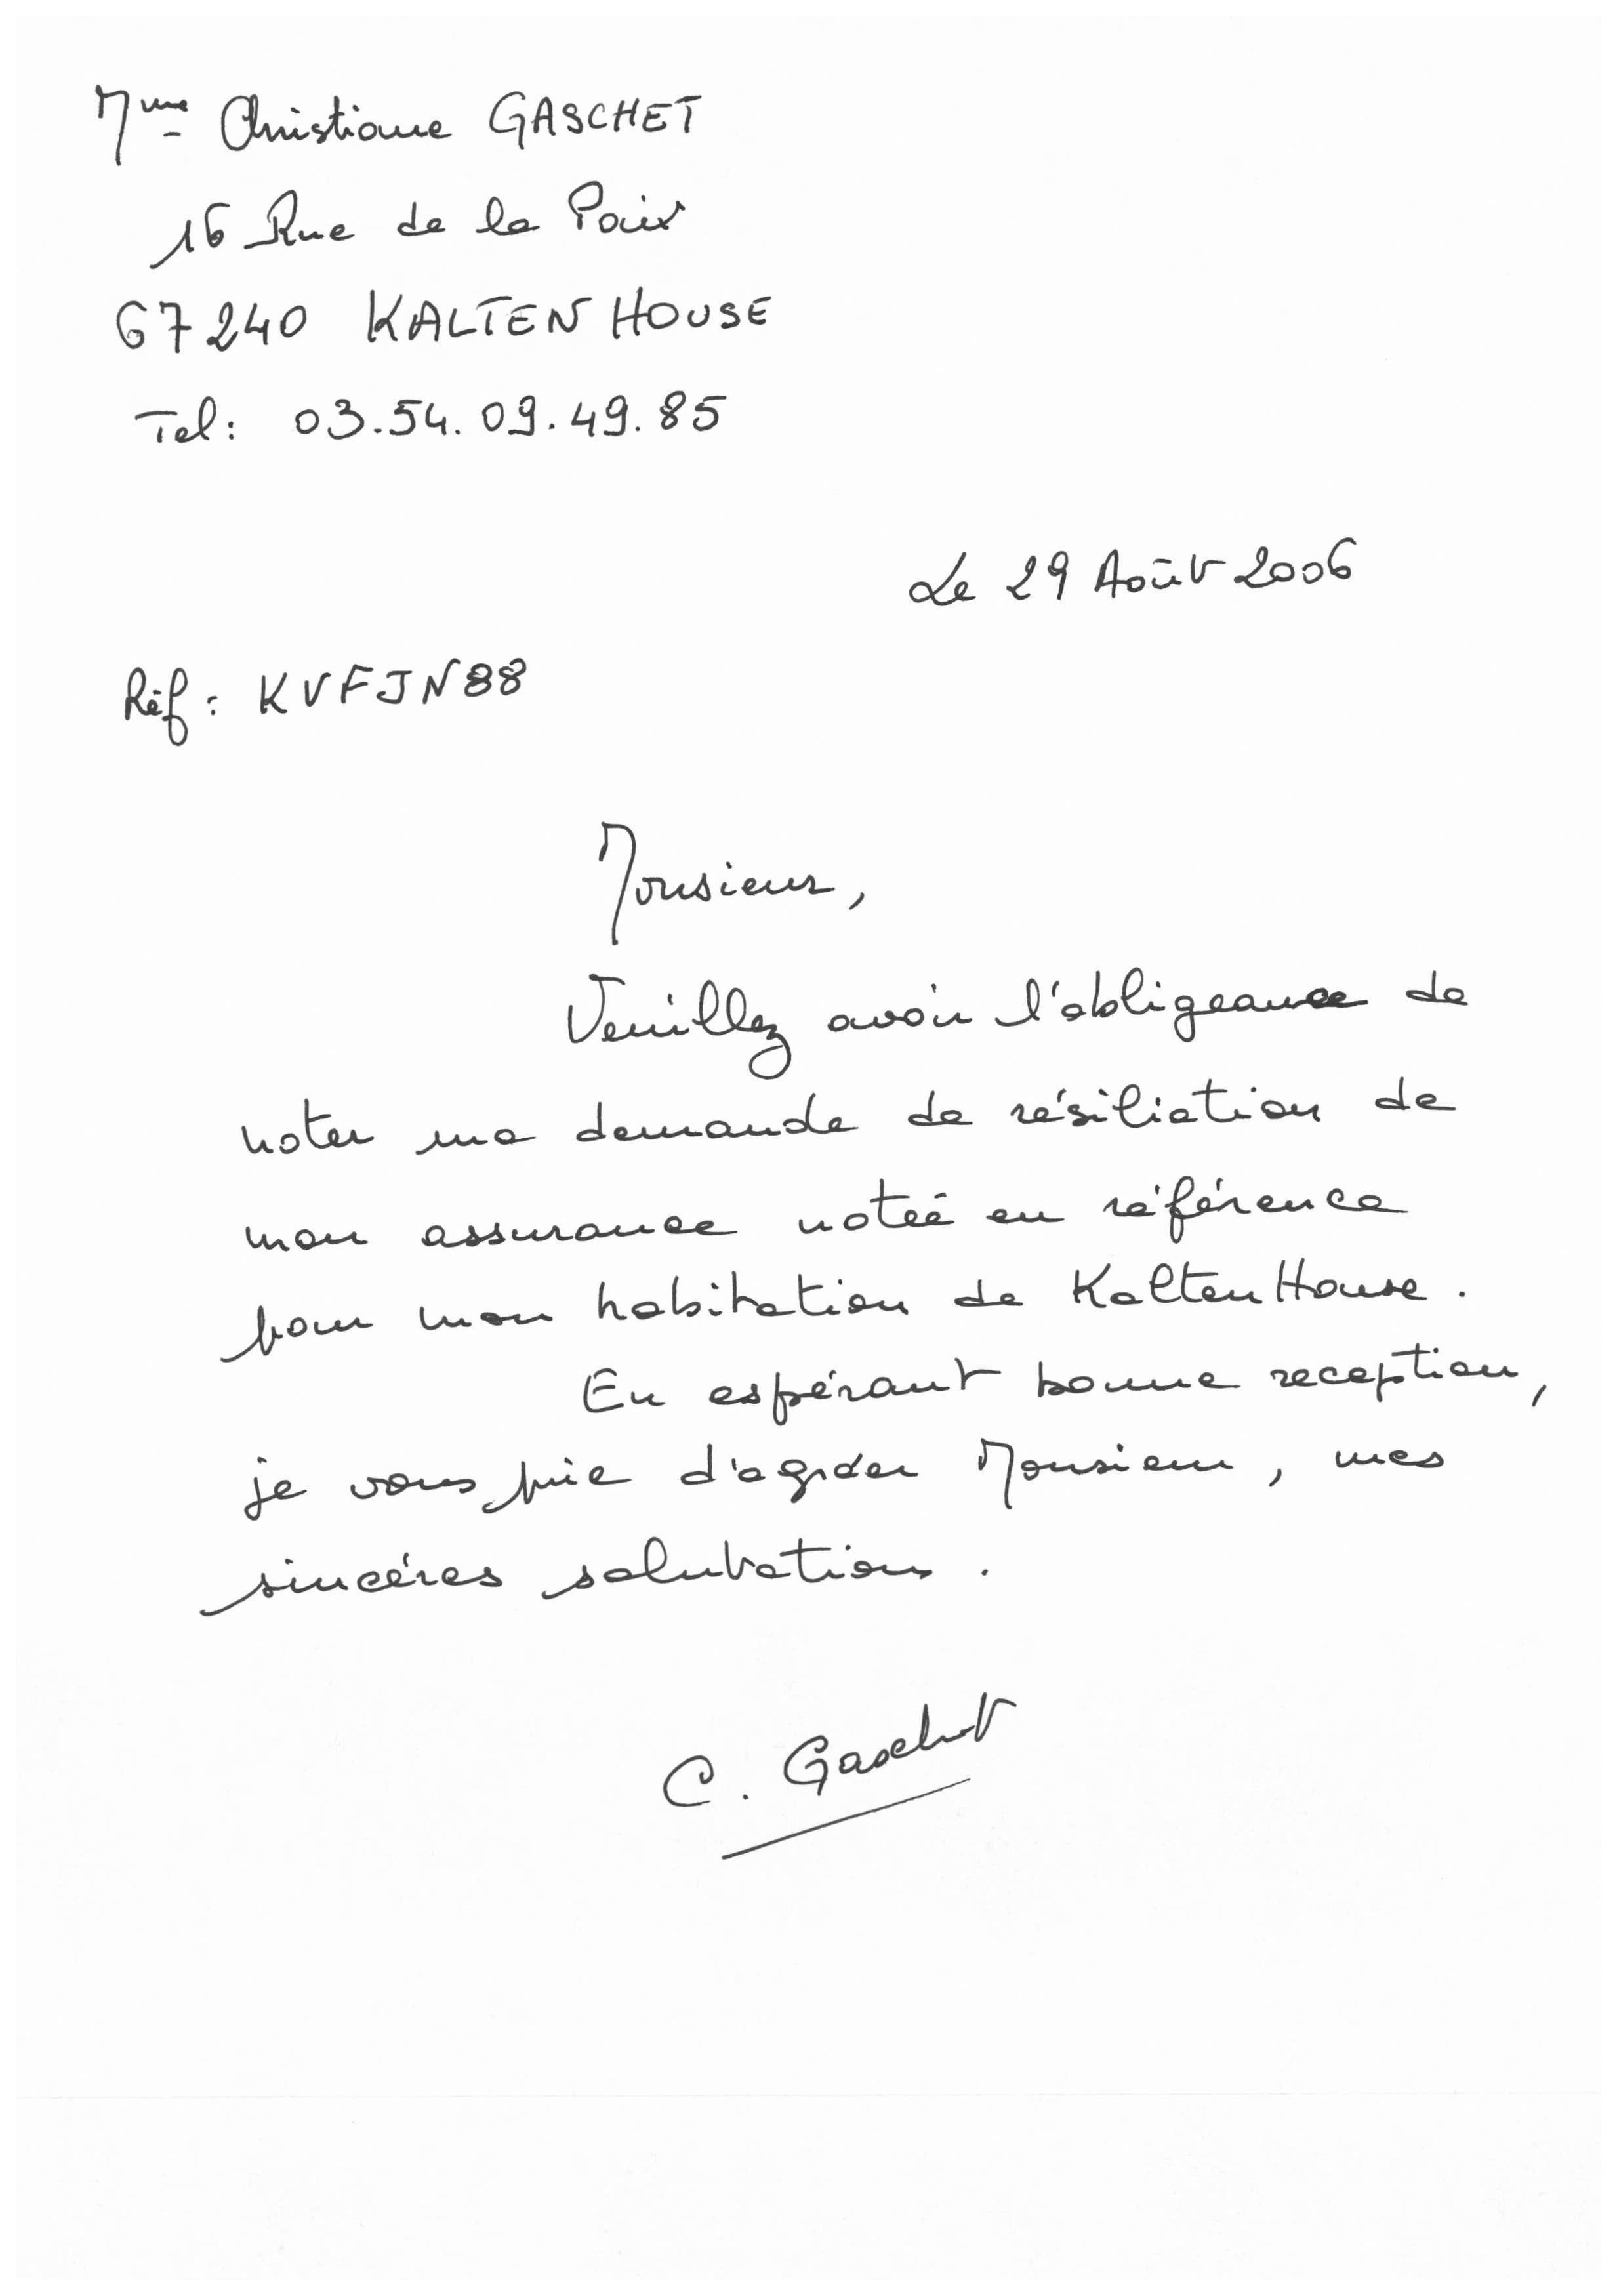 Mme Christiane GASCHET
16 Rue de la Paix
67240 KALTENHOUSE
Tel: 03.54.09.49.85
Le 29 Août 2006
Réf: KVFJN88
Monsieur,
Veuillez avoir l'obligeance de
noter ma demande de résiliation de
mon assurance notée en référence
pour mon habitation de KaltenHouse.
En espérant bonne reception,
je vous prie d'agréer Monsieur, mes
sincéres salutations.
C. Gaschet